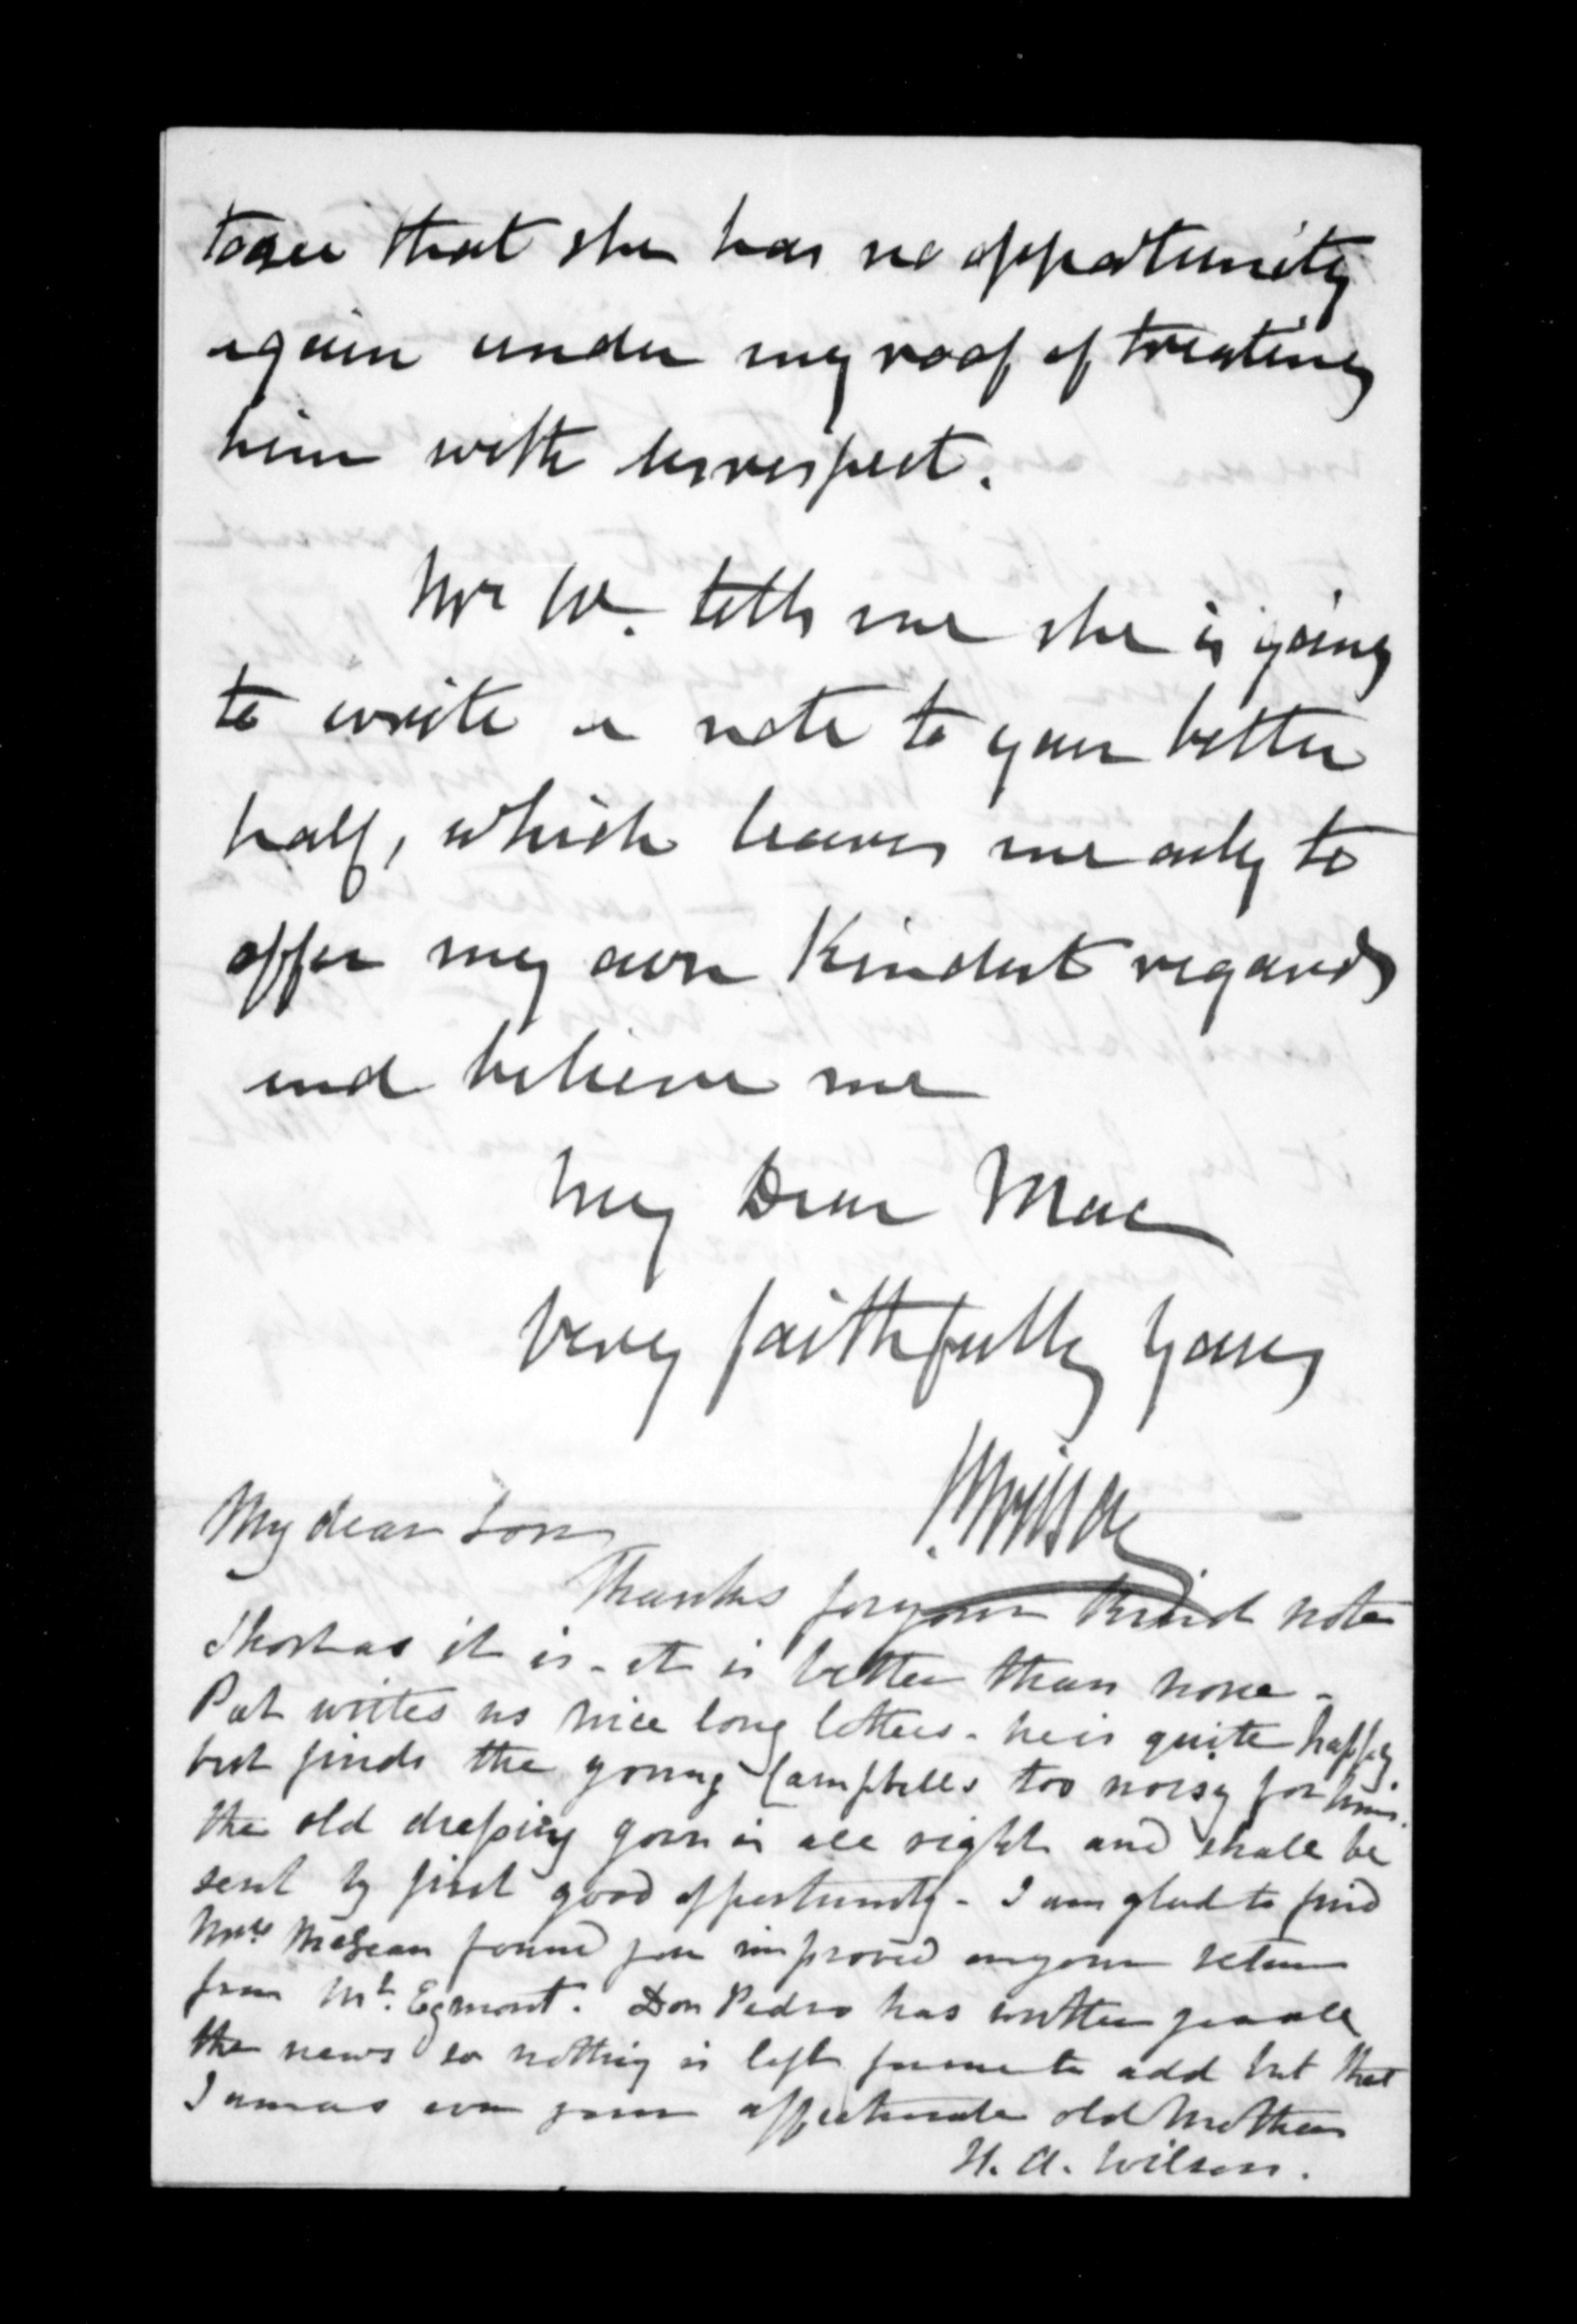 to see that she has no opportunity
again under my roof of treating
him with disrespect.
Mrs W. tells me she is going
to write a note to your better
half, which leaves me only to
offer my own Kindest regards
and believe me
My Dear Mac
Very faithfully Yours
My dear Son
Thanks for your kind note
Short as it is - it is better than none -
Pat writes us nice long letters - he is quite happy
but finds the young Campbells too noisy for him.
the old dressing gown is all right and shall be
sent by first good opportunity - I am glad to find
Mrs. McLean found you improved on your return
from Mt. Egmont. Don Pedro has written you all
the news so nothing is left for me to add but that
I am as ever your affectionate old Mother
H. A. Wilson.